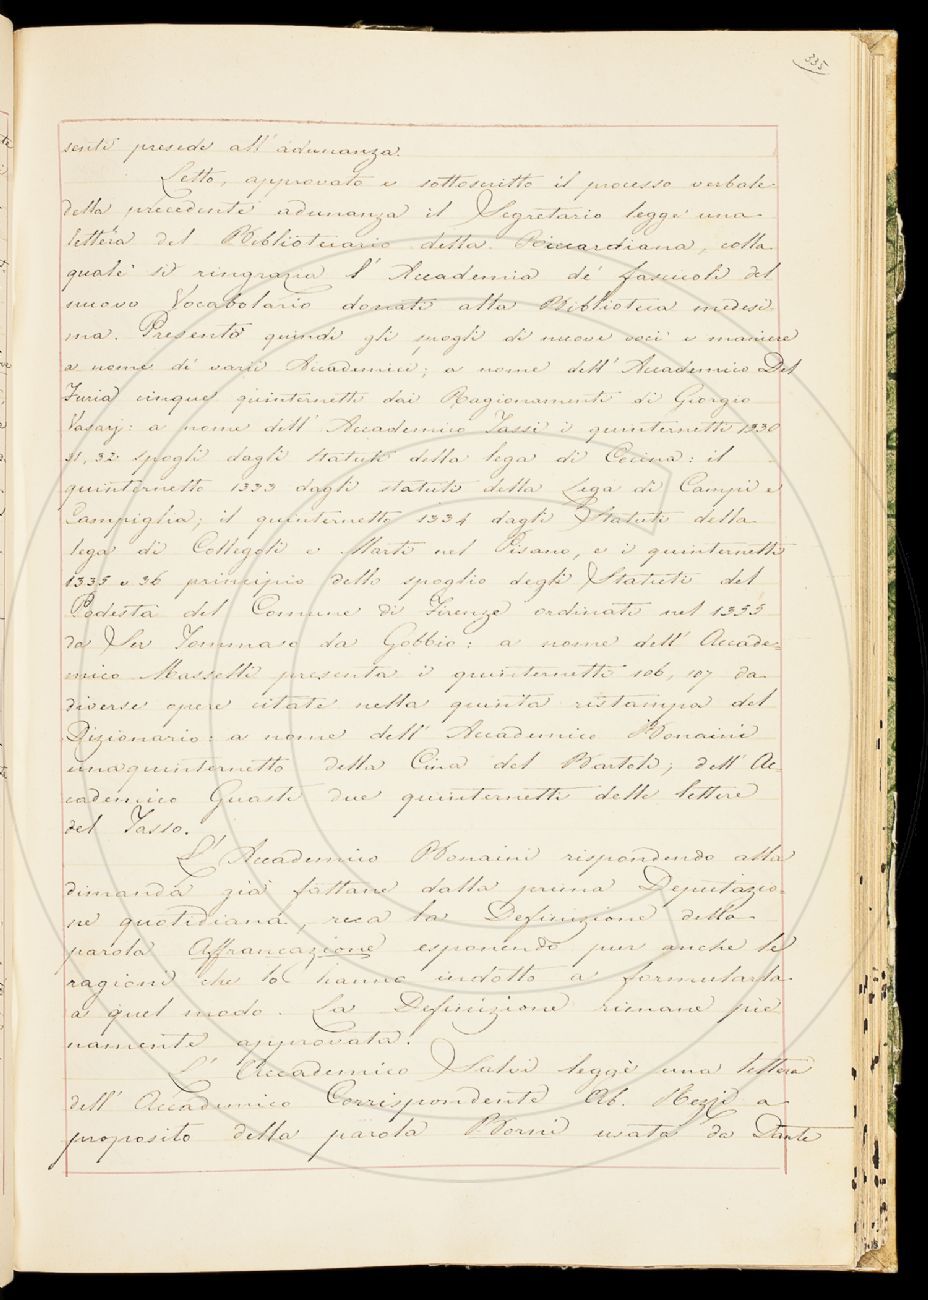 335
senti presede all'adunanza.
Letto, approvato e sottoscritto il processo verbale
della precedente adunanza il Segretario legge una
lettera del Bibliotecario della Riccardiana, colla
quale si ringrazia l'Accademia de' fascicoli del
nuovo Vocabolario donati alla Biblioteca medesi
ma. Presentò quindi gli spogli di nuove voci e maniere
a nome di varii Accademici; a nome dell'Accademico Del
Furia cinque quinternetti dai Ragionamenti di Giorgio
Vasarj: a nome dell'Accademico Tassi i quinternetti 1330
31, 32 spogli dagli statuti della lega di Cecina: il
quinternetto 1333 dagli statuti della Lega di Campi e
Campiglia; il quinternetto 1334 dagli Statuti della
lega di Collegoli e Marti nel Pisano, e i quinternetti
1335 e 36 principio dello spoglio degli Statuti del
Podestà del Comune di Firenze ordinati nel 1355
da Ser Tommaso da Gobbio: a nome dell'Accade=
mico Masselli presenta i quinternetti 106, 107 da
diverse opere citate nella quinta ristampa del
Dizionario: a nome dell'Accademico Bonaini
una quinternetto della Cina del Bartoli; dell'Ac=
cademico Guasti due quinternetti delle lettere
del Tasso.
L'Accademico Bonaini rispondendo alla
dimanda già fattane dalla prima Deputazio=
ne quotidiana, reca la Definizione della
parola Affrancazione esponendo pur anche le
ragioni che lo hanno indotto a formularla
a quel modo. La Definizione rimane pie
namente approvata.
L'Accademico Salvi legge una lettera
dell'Accademico Corrispondente Ab. Rezzi a
proposito della parola Borni usata da Dante